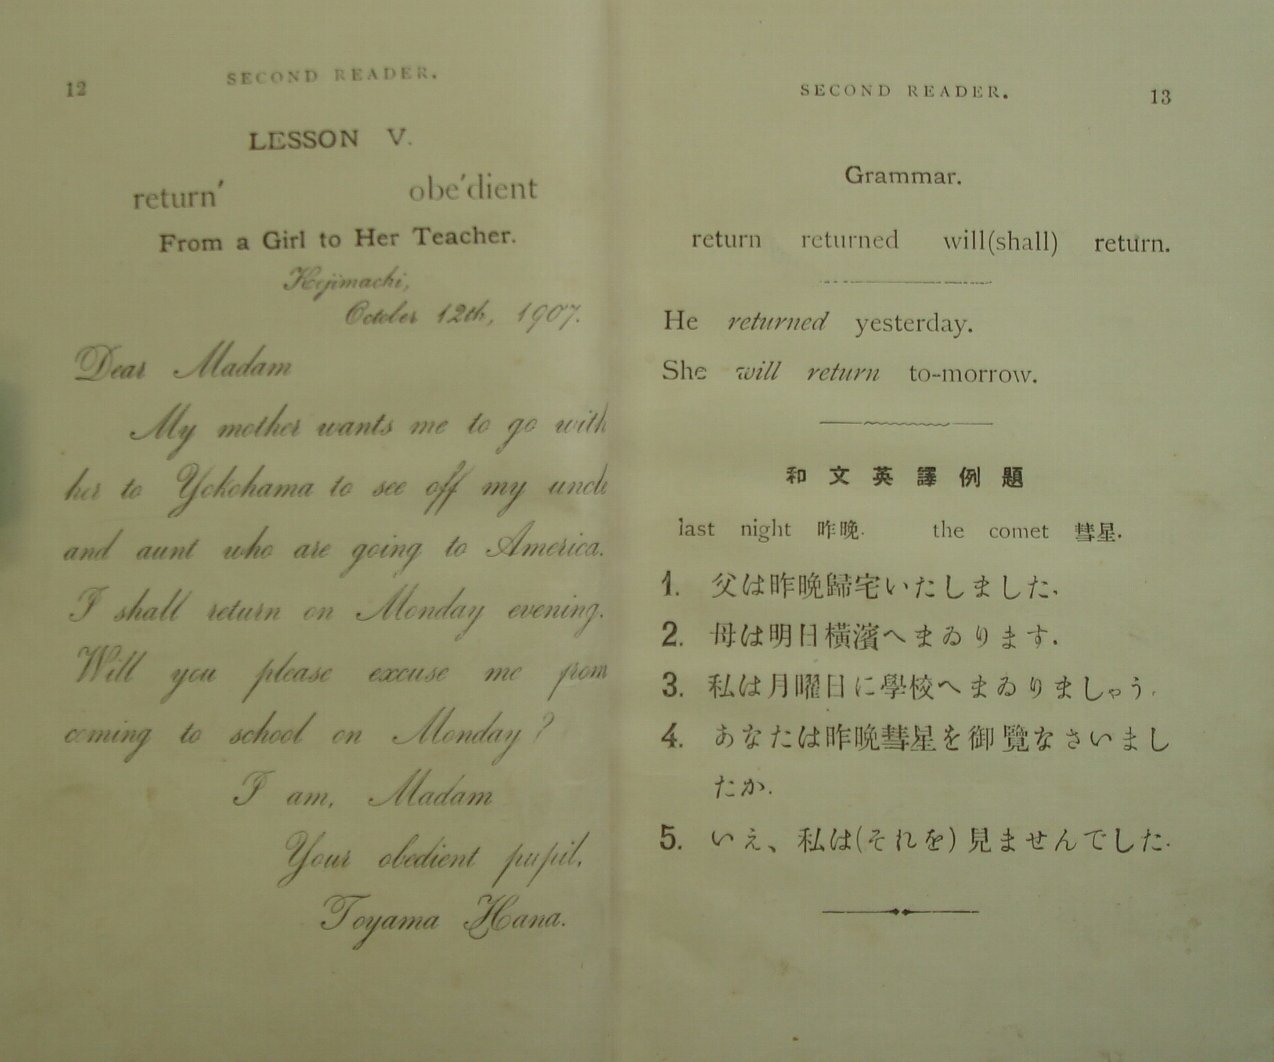 12
SECOND READER.
LESSON V.
return′ obe′dient
From a Girl to Her Teacher.
Kojimachi,
October 12th, 1907.
Dear Madam
My mother wants me to go with
her to Yokohama to see off my uncle
and aunt who are going to America.
I shall return on Monday evening.
Will you please excuse me from
coming to school on Monday?
I am, Madam
Your obedient pupil,
Toyama Hana.
SECOND READER.
13
Grammar.
return returned will(shall) return.
He returned yesterday.
She will return to-morrow.
和文英譯例題
last night 昨晩. the comet 彗星.
1. 父は昨晩歸宅いたしました.
2. 母は明日橫濱へまゐります.
3. 私は月曜日に學校へまゐりましゃう.
4. あなたは昨晩彗星を御覽なさいまし
たか.
5. いえ、私は(それを)見ませんでした.